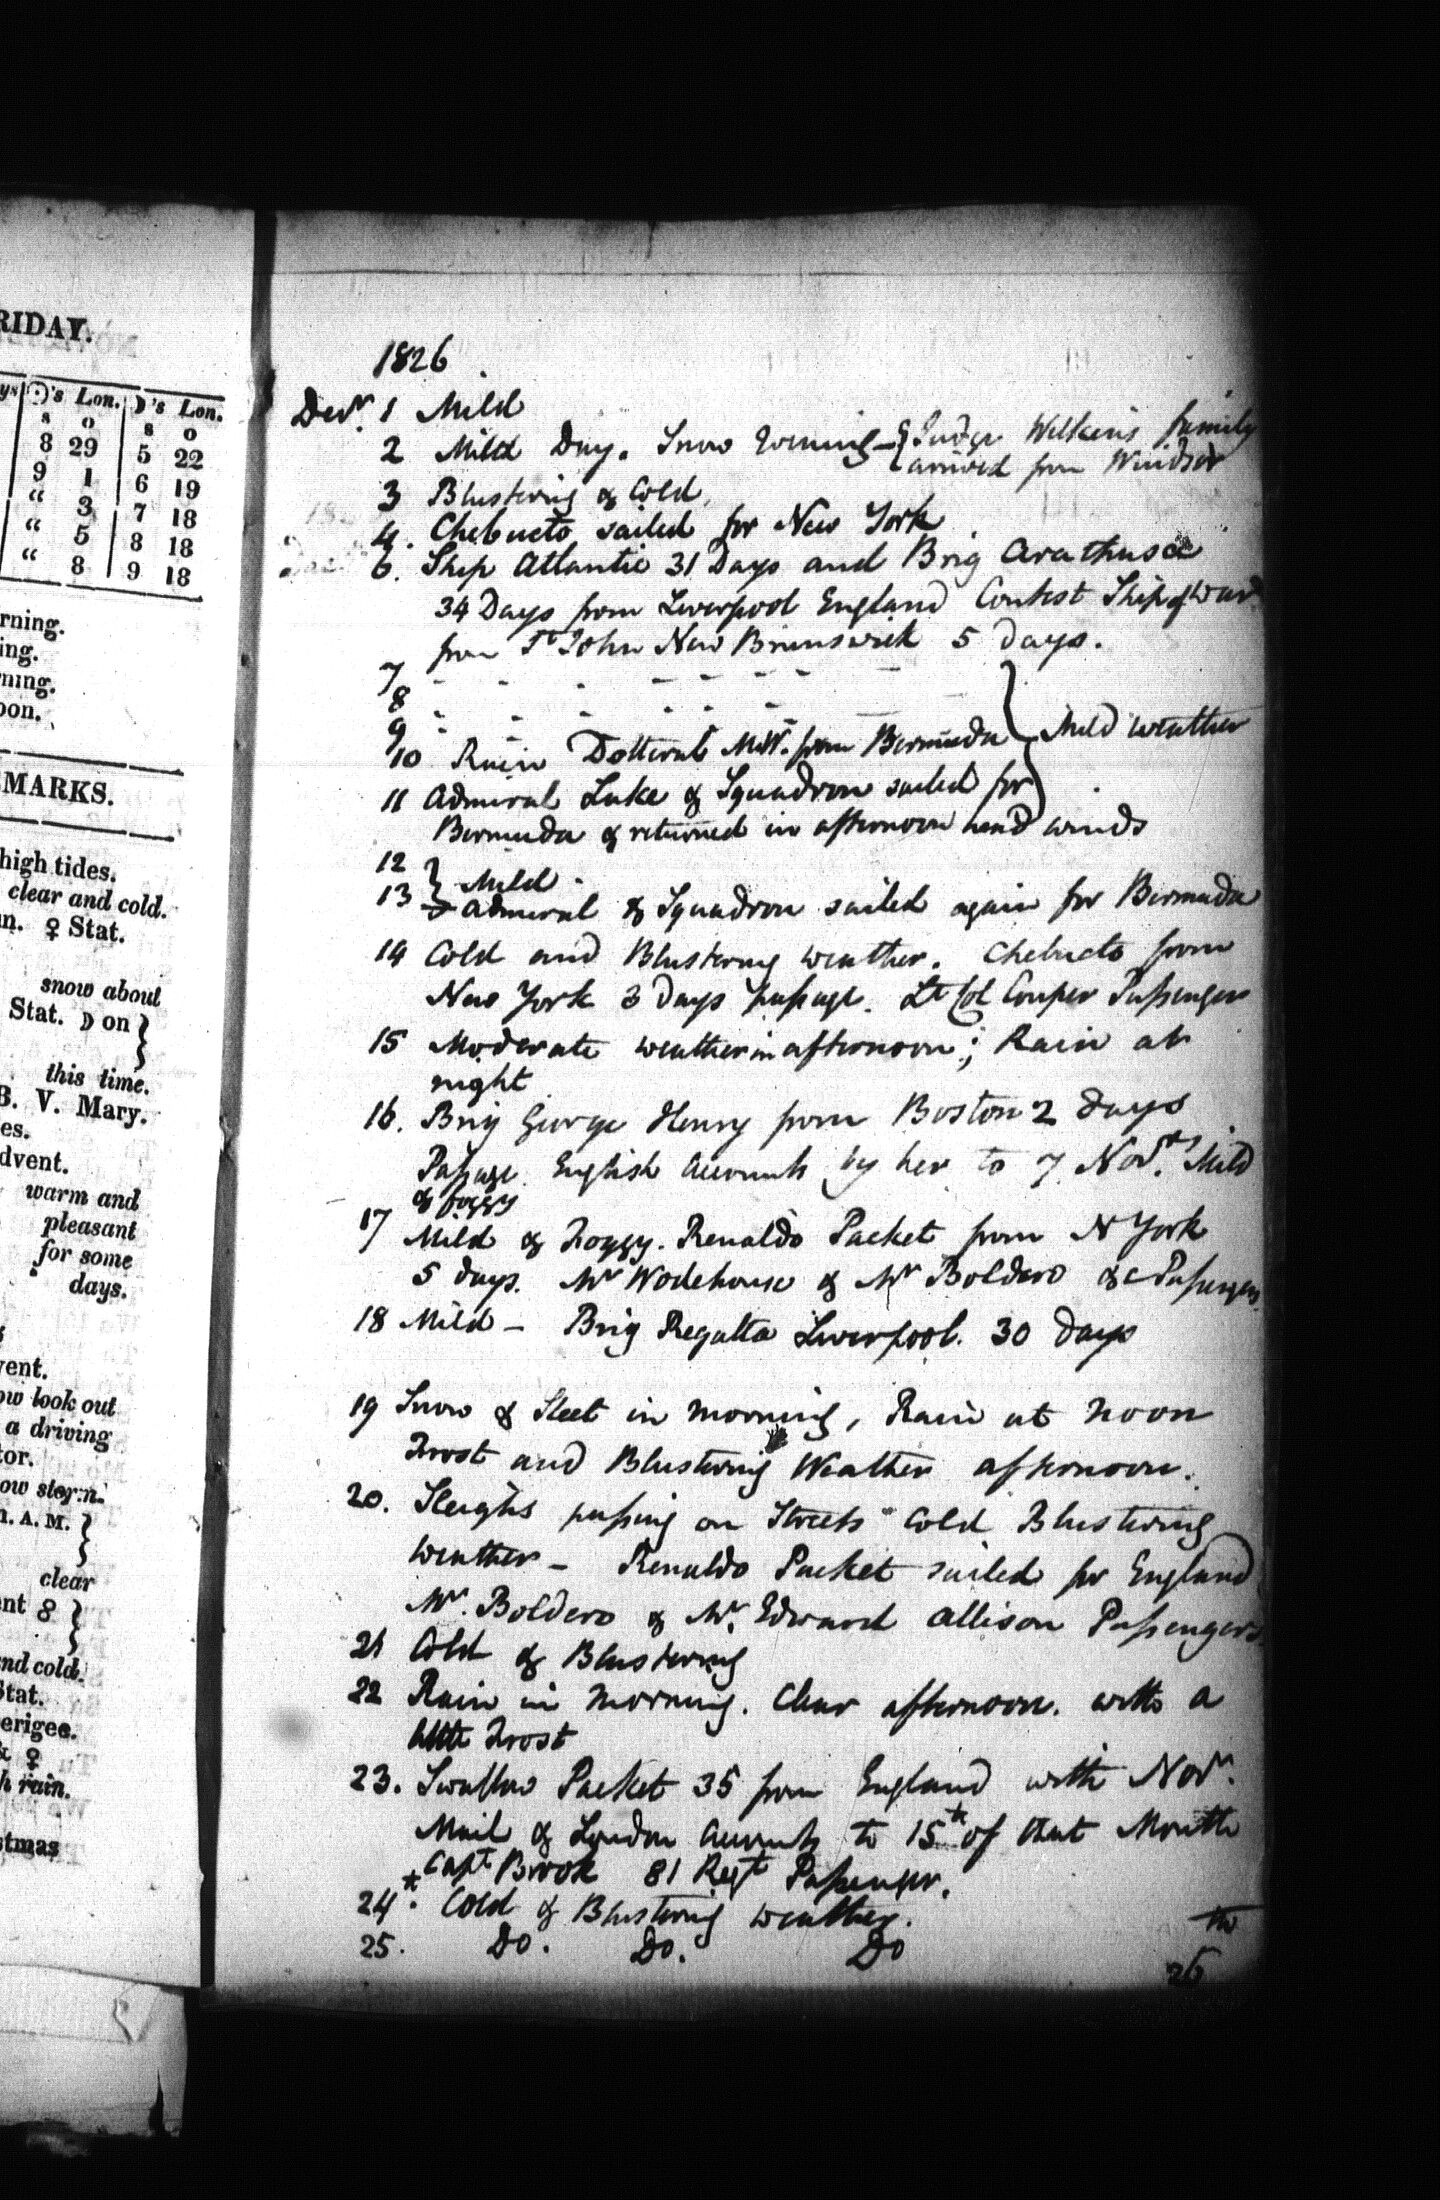 RIDAY.
ys ☉'s Lon. ☽'s Lon.
s o s o
8 29 5 22
9 1 6 19
" 3 7 18
" 5 8 18
" 8 9 18
rning.
ing.
rning.
oon.
MARKS.
high tides.
clear and cold.
n. ♀ Stat.
snow about
Stat. ☽ on }
this time.
B. V. Mary.
es.
dvent.
warm and
pleasant
for some
days.
vent.
ow look out
a driving
tor.
ow storm.
h. A. M. }
clear
ent 8 }
nd cold.
Stat.
erigee.
& ♀
h rain.
stmas
1826
Decr. 1 Mild
2 Mild Day. Snow Evening - { Judge Wilkins family
arrived from Windsor
3 Blustering & Cold
4. Chebucto sailed for New York
6. Ship Atlantic 31 Days and Brig Arathusa
34 Days from Liverpool England Contest Ship of War
from St John New Brunswick 5 days.
7 - - - - - - -
8
9 - - - - - - } Mild weather
10 Rain Dotteral MW. from Bermuda
11 Admiral Lake & Squadron sailed for
Bermuda & returned in afternoon head winds
12 } Mild.
13 } Admiral & Squadron sailed again for Bermuda
14 Cold and Blustering weather. Chebucto from
New York 3 Days passage. Lt Col Couper Passenger
15 Moderate weather in afternoon; Rain at
night
16. Brig George Henry from Boston 2 days
Passage. English Accounts by her to 7 Novr. Mild
& foggy
17 Mild & Foggy. Renaldo Packet from N York
5 days. Mr Wodehouse & Mr Boldero &c Passengers
18 Mild - Brig Regatta Liverpool. 30 days
19 Snow & Sleet in morning, Rain at noon
Frost and Blustering Weather afternoon.
20. Sleighs passing on Streets Cold Blustering
weather - Renaldo Packet sailed for England
Mr. Boldero & Mr. Edward Allison Passengers
21 Cold & Blustering
22 Rain in morning. Clear afternoon. with a
little Frost
23. Swallow Packet 35 from England with Novr.
Mail & London accounts to 15th of that Month
Capt Brook 81 Regt Passenger.
24th. Cold & Blustering weather.
25. Do. Do. Do
26